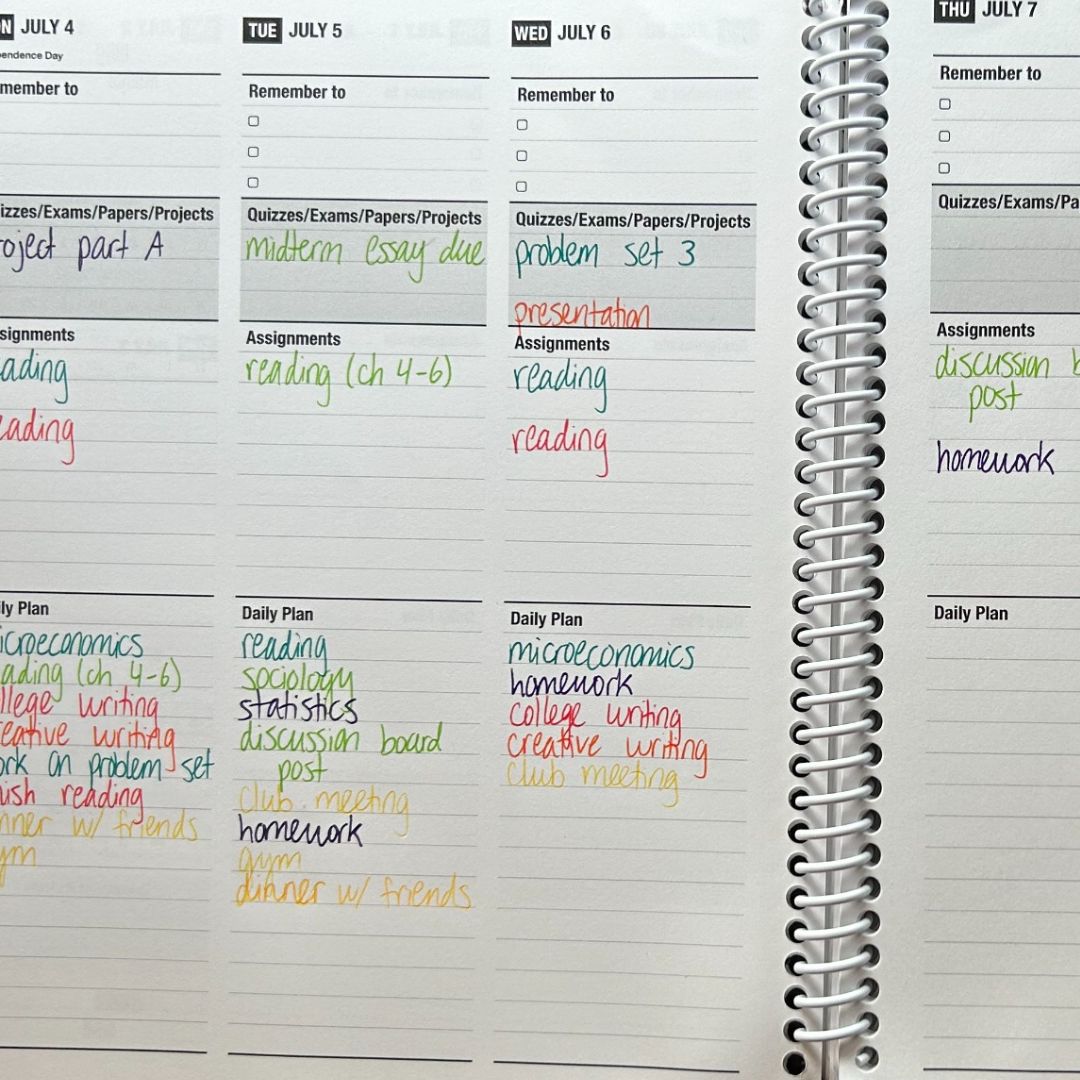 JULY 4
Independence Day
Remember to
Quizzes/Exams/Papers/Projects
project part A
Assignments
reading
reading
Daily Plan
microeconomics
reading (ch 4-6)
college writing
creative writing
work on problem set
finish reading
dinner w/ friends
gym
TUE JULY 5
Remember to
Quizzes/Exams/Papers/Projects
midterm essay due
Assignments
reading (ch 4-6)
Daily Plan
reading
sociology
statistics
discussion board
post
club meeting
homework
gym
dinner w/ friends
WED JULY 6
Remember to
Quizzes/Exams/Papers/Projects
problem set 3
presentation
Assignments
reading
reading
Daily Plan
microeconomics
homework
college writing
creative writing
club meeting
THU JULY 7
Remember to
Quizzes/Exams/Pa
Assignments
discussion b
post
homework
Daily Plan